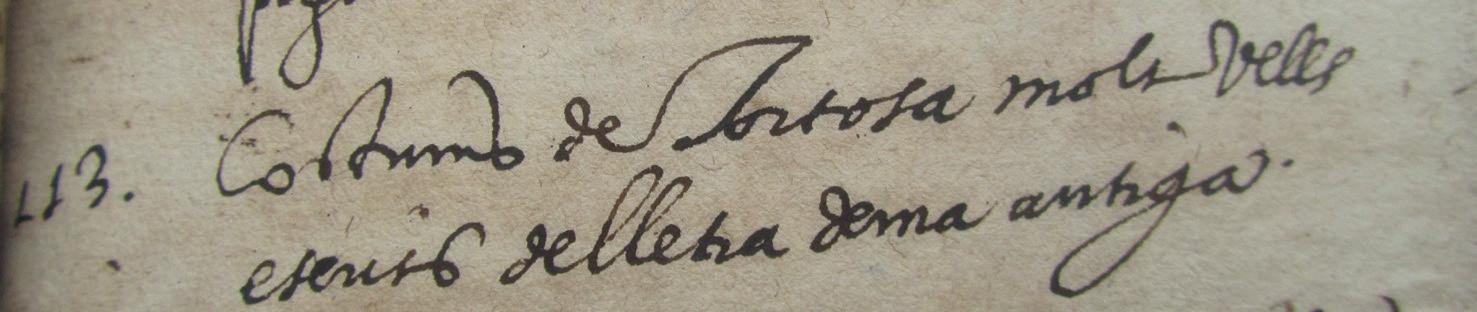 113. Costums de Tortosa molt vells
escrits de lletra de ma antiga.